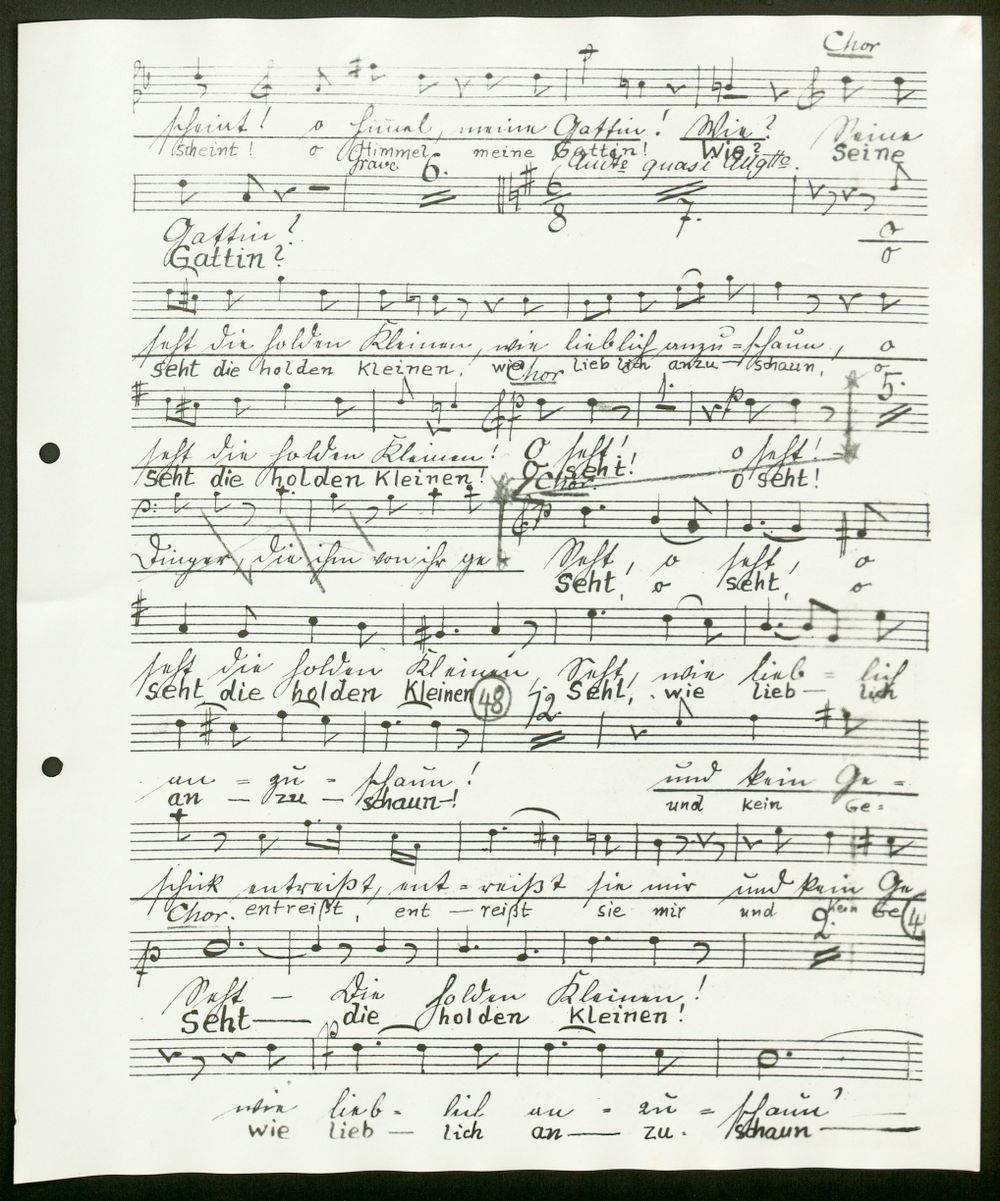 Chor
scheint! o Himmel, meine Gattin! Wie? Seine
scheint! o Himmel, meine Gattin! Wie? Seine
grave 6. Andte quasi Allgtto.
6
8 7.
Gattin? o
Gattin? o
seht die holden Kleinen, wie lieblich anzu=schaun, o
seht die holden Kleinen, wie lieblich anzu — schaun, o
Chor 1. 5.
seht die holden Kleinen! O seht! o seht!
seht die holden Kleinen! O seht! o seht!
Chor.
Dinger, die ihm von ihr ge Seht, o seht, o
Seht, o seht, o
seht die holden Kleinen, Seht, wie lieb = lich
seht die holden Kleinen Seht, wie lieb — lich
48 12.
an = zu - schaun! und kein Ge =
an — zu — schaun—! und kein Ge=
schick entreißt, ent = reißt sie mir und kein Ge
Chor. entreißt, ent — reißt sie mir und kein Ge
2. 4
Seht — Die holden Kleinen!
Seht — die holden Kleinen!
wie lieb = lich an = zu = schaun —
wie lieb — lich an — zu - schaun —